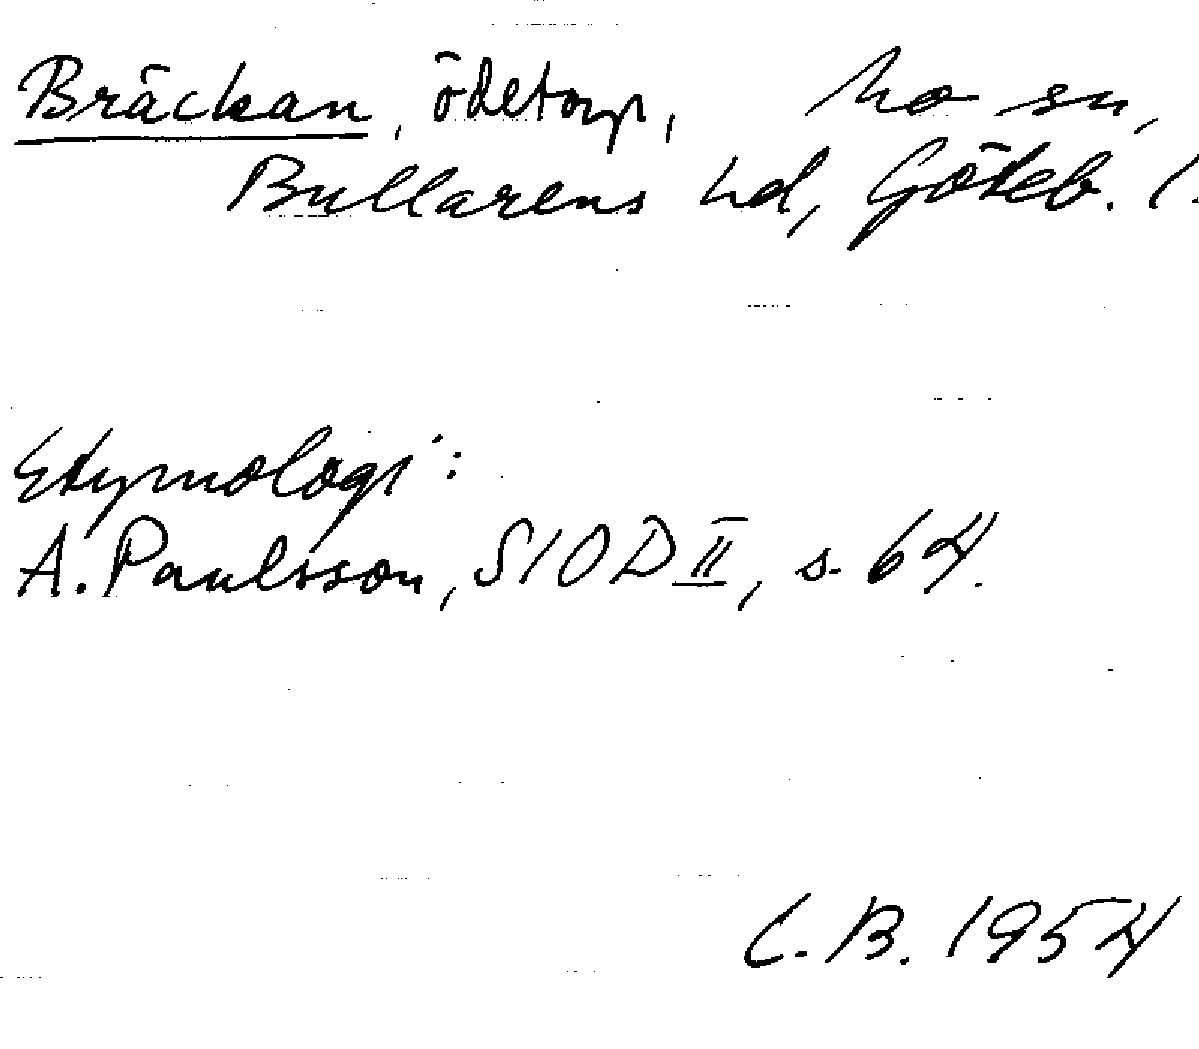 Bräckan, ödetorp, Mo sn,
Bullarens hd, Göteb. l.
Etymologi:
A. Paulsson, SIOD II, s. 64.
C. B. 1954